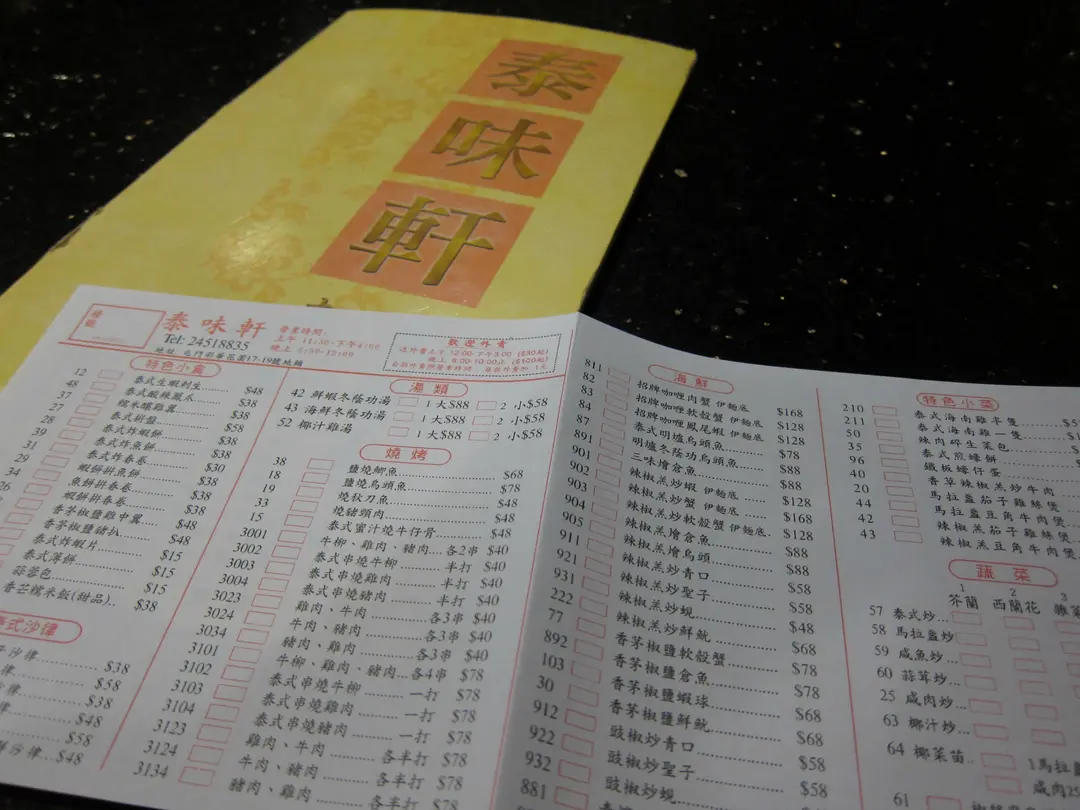 泰
味
軒
檯號
泰味軒
Tel: 24518835
營業時間:
上午 11:30-下午4:00
晚上 6:00-12:00
歡迎外賣
特色小食
12 泰式生蝦刺生 $48
48 泰式酸辣鳳爪 $38
37 糯米釀雞翼 $38
27 泰式拼盤 $58
28 泰式炸蝦餅 $38
39 泰式炸魚餅 $38
31 泰式炸春卷 $30
29 蝦餅拼魚餅 $38
34 魚餅拼春卷 $38
26 蝦餅拼春卷 $38
香茅椒鹽雞中翼 $48
香茅椒鹽豬扒 $48
泰式炸蝦片 $15
泰式薄餅 $15
蒜蓉包 $15
香芒糯米飯(甜品) $38
泰式沙律
沙律 $38
律 $58
律 $38
律 $48
$58
沙律 $48
湯類
42 鮮蝦冬蔭功湯 1 大$88 2 小$58
43 海鮮冬蔭功湯 1 大$88 2 小$58
52 椰汁雞湯 1 大$88 2 小$58
燒烤
38 鹽燒鯽魚 $68
18 鹽燒烏頭魚 $78
19 燒秋刀魚 $48
33 燒豬頸肉 $48
15 泰式蜜汁燒牛仔骨 $48
3001 牛柳、雞肉、豬肉 各2串 $40
3002 泰式串燒牛柳 半打 $40
3003 泰式串燒雞肉 半打 $40
3004 泰式串燒豬肉 半打 $40
3023 雞肉、牛肉 各3串 $40
3024 牛肉、豬肉 各3串 $40
3034 豬肉、雞肉 各3串 $40
3101 牛柳、雞肉、豬肉 各4串 $78
3102 泰式串燒牛柳 一打 $78
3103 泰式串燒雞肉 一打 $78
3104 泰式串燒豬肉 一打 $78
3123 雞肉、牛肉 各半打 $78
3124 牛肉、豬肉 各半打 $78
3134 豬肉、雞肉 各半打 $78
海鮮
811 招牌咖喱肉蟹 伊麵底 $168
82 招牌咖喱軟殼蟹 伊麵底 $128
83 招牌咖喱鳳尾蝦 伊麵底 $128
84 泰式明爐烏頭魚 $78
87 明爐冬蔭功烏頭魚 $88
891 三味燴倉魚 $88
901 辣椒羔炒蝦 伊麵底 $128
902 辣椒羔炒蟹 伊麵底 $168
903 辣椒羔炒軟殼蟹 伊麵底 $128
904 辣椒羔燴倉魚 $88
905 辣椒羔燴烏頭 $88
911 辣椒羔炒青口 $58
921 辣椒羔炒聖子 $58
931 辣椒羔炒蜆 $48
222 辣椒羔炒鮮魷 $68
77 香茅椒鹽軟殼蟹 $78
892 香茅椒鹽倉魚 $78
103 香茅椒鹽蝦球 $68
30 香茅椒鹽鮮魷 $68
912 豉椒炒青口 $58
922 豉椒炒聖子 $58
932 豉椒炒蜆
881
特色小菜
210 泰式海南雞半隻
211 泰式海南雞一隻
50 辣肉碎生菜包
35 泰式煎蠔餅
96 鐵板蠔仔蛋
40 香草辣椒羔炒牛肉
20 馬拉盞茄子雞絲煲
44 馬拉盞豆角牛肉煲
42 辣椒羔茄子雞絲煲
43 辣椒羔豆角牛肉煲
蔬菜
1 2 3
芥蘭 西蘭花
57 泰式炒
58 馬拉盞炒
59 咸魚炒
60 蒜茸炒
25 咸肉炒
63 椰汁炒
64 椰菜苗
61